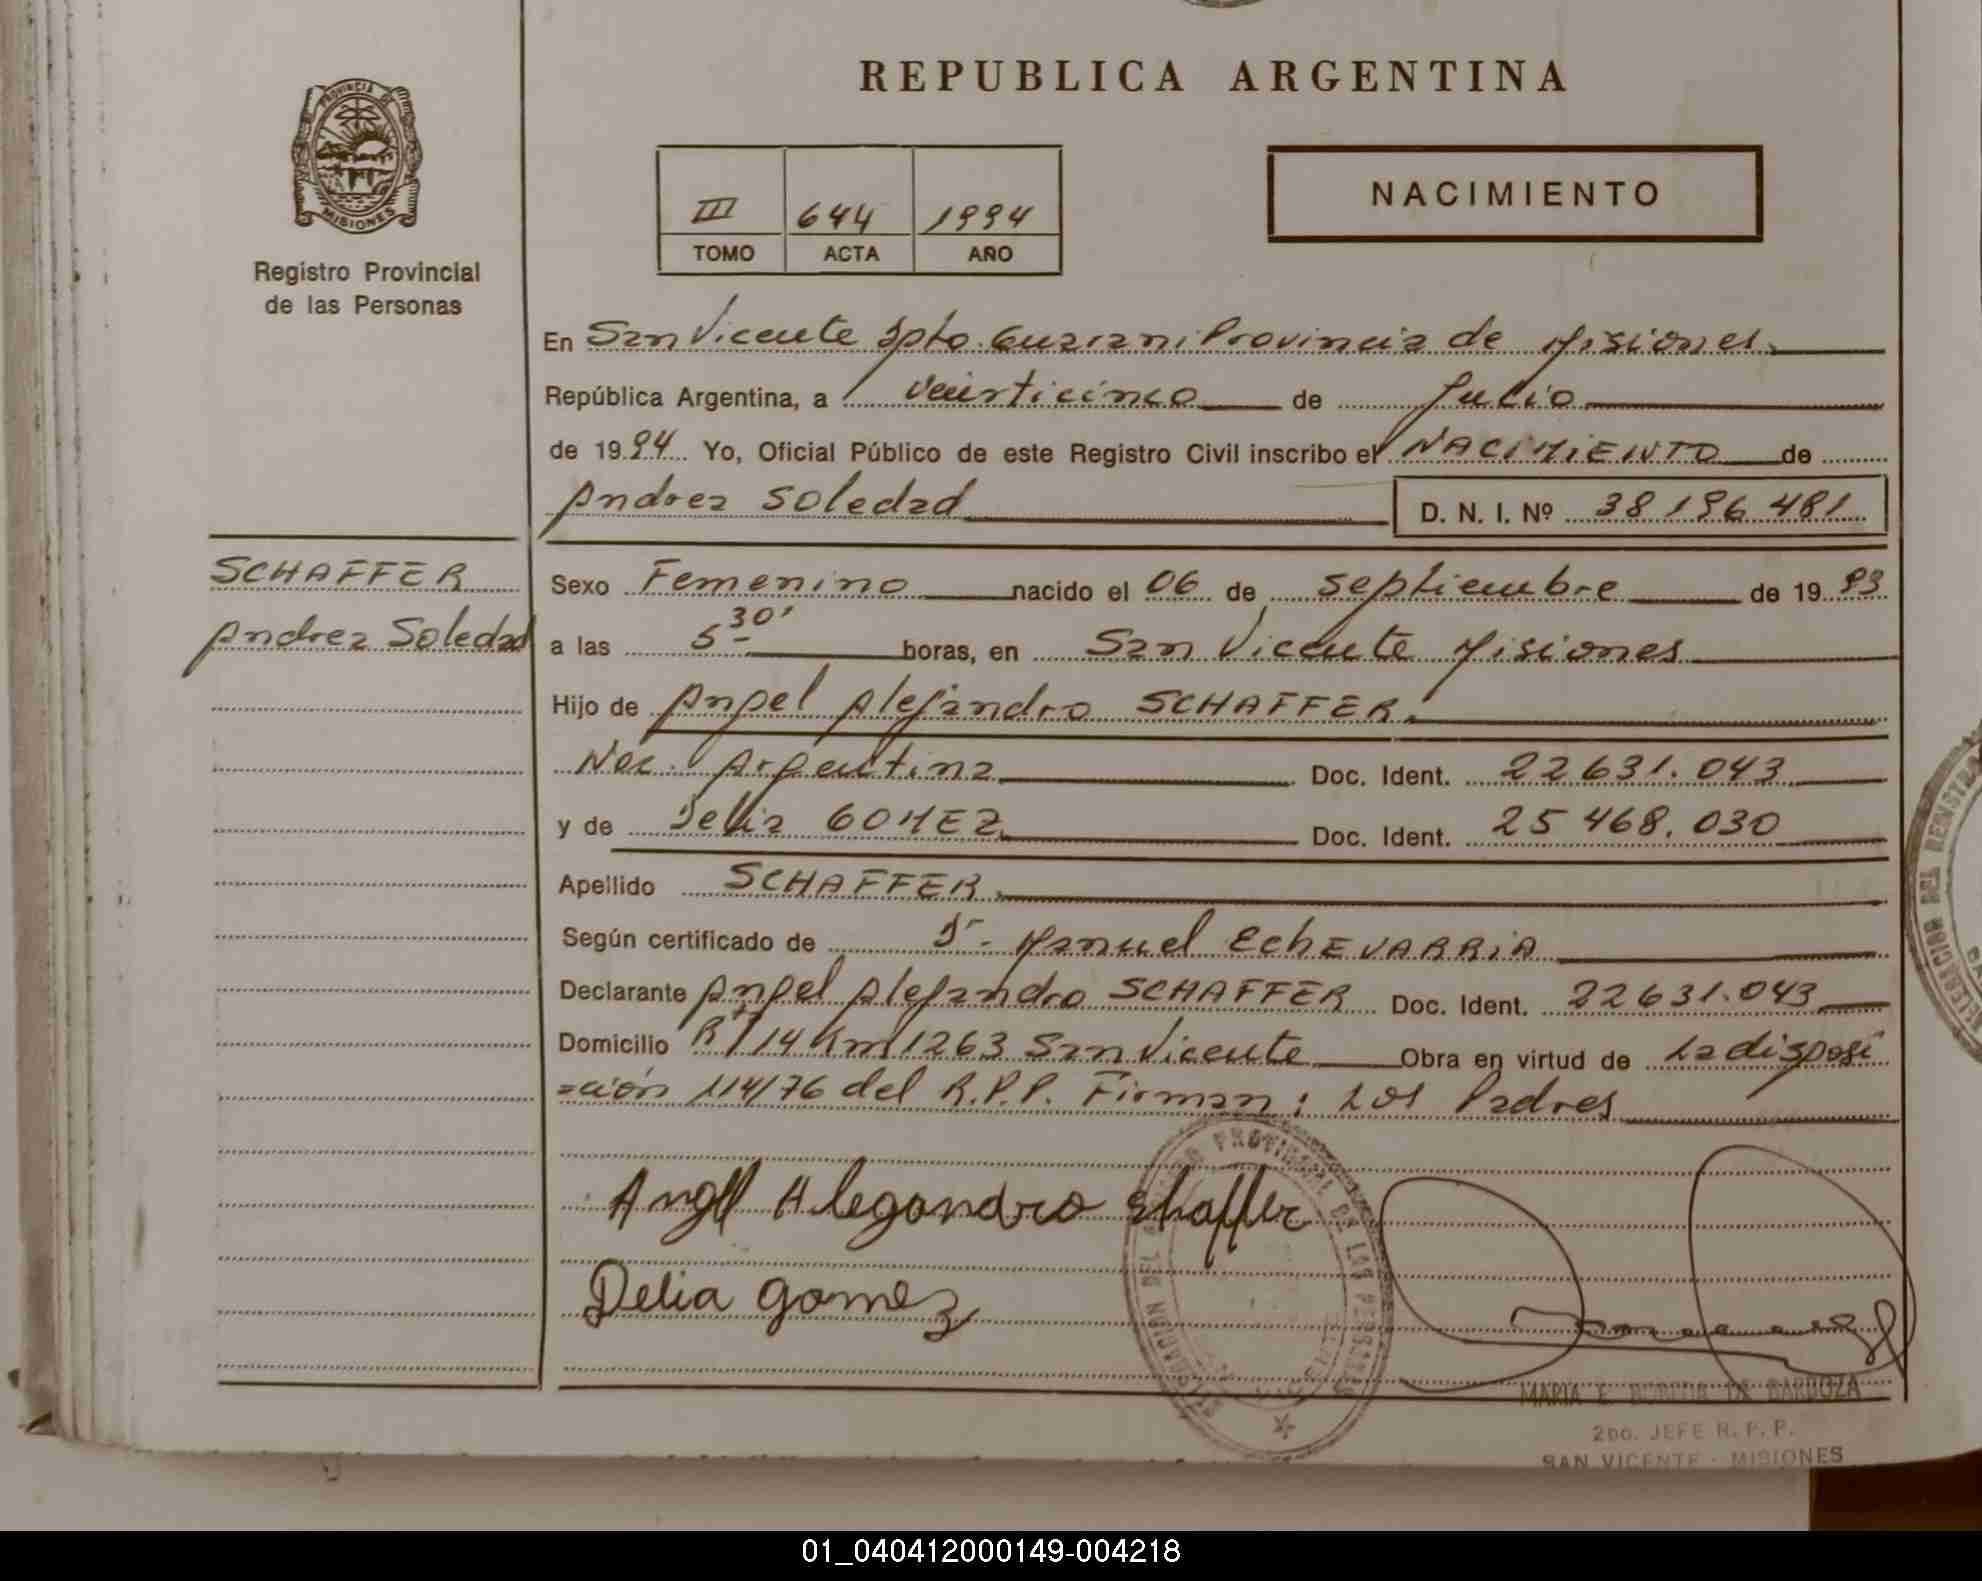 REPUBLICA ARGENTINA
PROVINCIA DE
MISIONES
Registro Provincial
de las Personas
III 644 1994
TOMO ACTA AÑO
NACIMIENTO
En San Vicente Dpto. Guarani Provincia de Misiones
República Argentina, a veinticinco de Julio
de 1994 Yo, Oficial Público de este Registro Civil inscribo el NACIMIENTO de
Andrea Soledad D. N. I. Nº 38 196 481
SCHAFFER
Andrea Soledad
Sexo Femenino nacido el 06 de septiembre de 1993
a las 5 30' horas, en San Vicente Misiones
Hijo de Angel Alejandro SCHAFFER
Nac. Argentina Doc. Ident. 22631.043
y de Delia GOMEZ Doc. Ident. 25 468.030
Apellido SCHAFFER
Según certificado de Dr. Manuel EchEVARRiA
Declarante Angel Alejandro SCHAFFER Doc. Ident. 22631.043
Domicilio R/14 Km 1263 San Vicente Obra en virtud de La disposi
=ción 114/76 del R.P.P. Firman: Los Padres
Angel Alegandro Shaffer
Delia gomez
PROVINCIAL DE LAS PERSONAS
DELEGACION DEL REGISTRO
MARIA E. DE BARBOZA
2DO. JEFE R. P. P.
SAN VICENTE - MISIONES
01_040412000149-004218